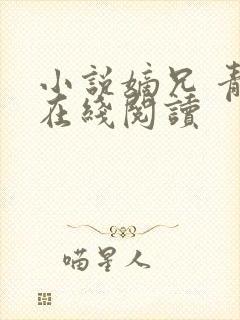 小說嫡兄 青
在綫閱讀
喵星人